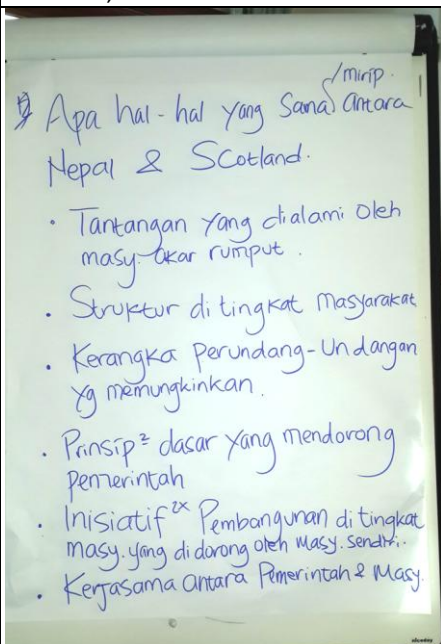 /mirip.
Apa hal-hal yang Sama antara
Nepal & Scotland.
• Tantangan yang dialami oleh
masy. akar rumput.
• Struktur di tingkat masyarakat
• Kerangka perundang-undangan
yg memungkinkan.
• Prinsip² dasar yang mendorong
pemerintah
• Inisiatif²ˣ Pembangunan di tingkat
masy. yang didorong oleh masy. sendiri.
• Kerjasama antara Pemerintah & Masy.